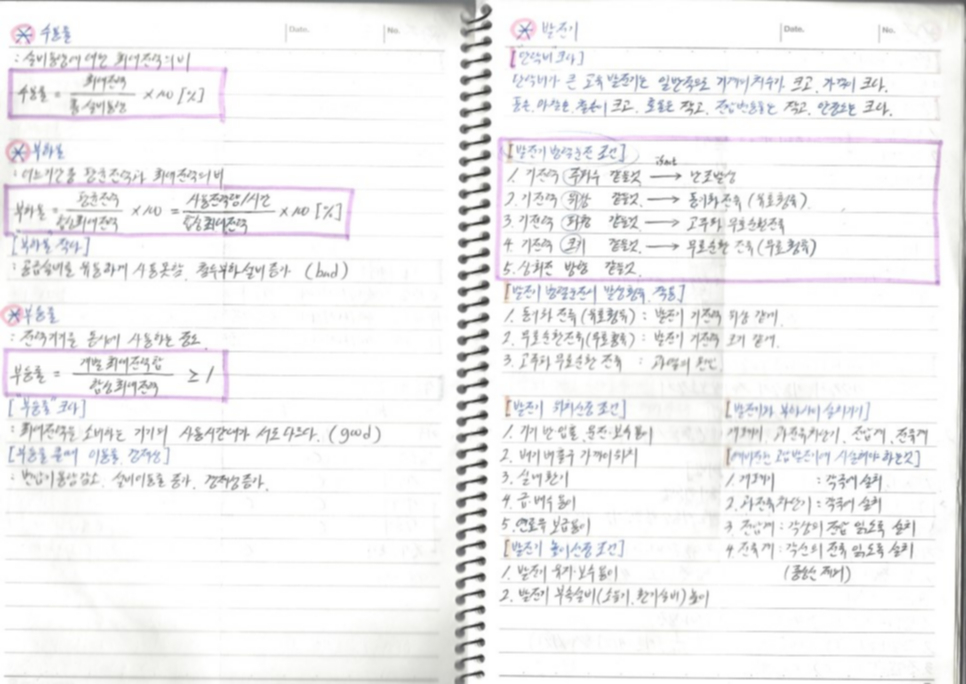 수용률
: 설비용량에 대한 최대전력의 비
수용률 = 최대전력 / 총 설비용량 × 100 [%]
부하율
: 어느기간 중 평균전력과 최대전력의 비
부하율 = 평균전력 / 합성최대전력 × 100 = 사용전력량/시간 / 합성최대전력 × 100 [%]
["부하율" 작다]
: 공급설비를 유용하게 사용못함, 첨두부하설비 증가 (bad)
부등률
: 전력기기를 동시에 사용하는 정도
부등률 = 개별 최대전력합 / 합성최대전력 ≥ 1
["부등률" 크다]
: 최대전력을 소비하는 기기의 사용시간대가 서로 다르다. (good)
[부등률 이용률, 경제성]
: 변압기용량 감소, 설비이용률 증가, 경제성증가.
Date. No.
발전기
["단락비" 크다]
단락비가 큰 동기 발전기는 일반적으로 기계의 치수가 크고, 가격이 크다.
풍손, 마찰손, 철손이 크고, 효율은 작고, 전압변동률은 작고, 안정도는 크다.
[발전기 병렬운전 조건]
1. 기전력 주파수 같을것 → 난조발생
2. 기전력 위상 같을것. → 동기화전류 (유효횡류).
3. 기전력 파형 같을것 → 고주파 무효순환전류
4. 기전력 크기 같을것. → 무효순환 전류 (무효횡류)
5. 상회전 방향 같을것.
[발전기 병렬운전시 발생횡류, 작용]
1. 동기화 전류 (유효횡류) : 발전기 기전력 위상 같게.
2. 무효순환전류(무효횡류) : 발전기 기전력 크기 같게.
3. 고주파 무효순환 전류 : 과열의 원인
[발전기 위치선정 조건]
1. 기기 반입출, 운전·보수 용이
2. 배기 배출구 가까이 위치
3. 실내 환기
4. 급·배수 용이
5. 연료유 보급용이
[발전기 높이선정 조건]
1. 발전기 유지·보수 용이
2. 발전기 부속설비(소음기, 환기설비) 높이
[발전기와 부하사이 설치기기]
개폐기, 과전류차단기, 전압계, 전류계
1. 개폐기 : 각극에 설치
2. 과전류차단기 : 각극에 설치
3. 전압계 : 각상의 전압 읽도록 설치
4. 전류계 : 각선의 전류 읽도록 설치
(중성선 제외)